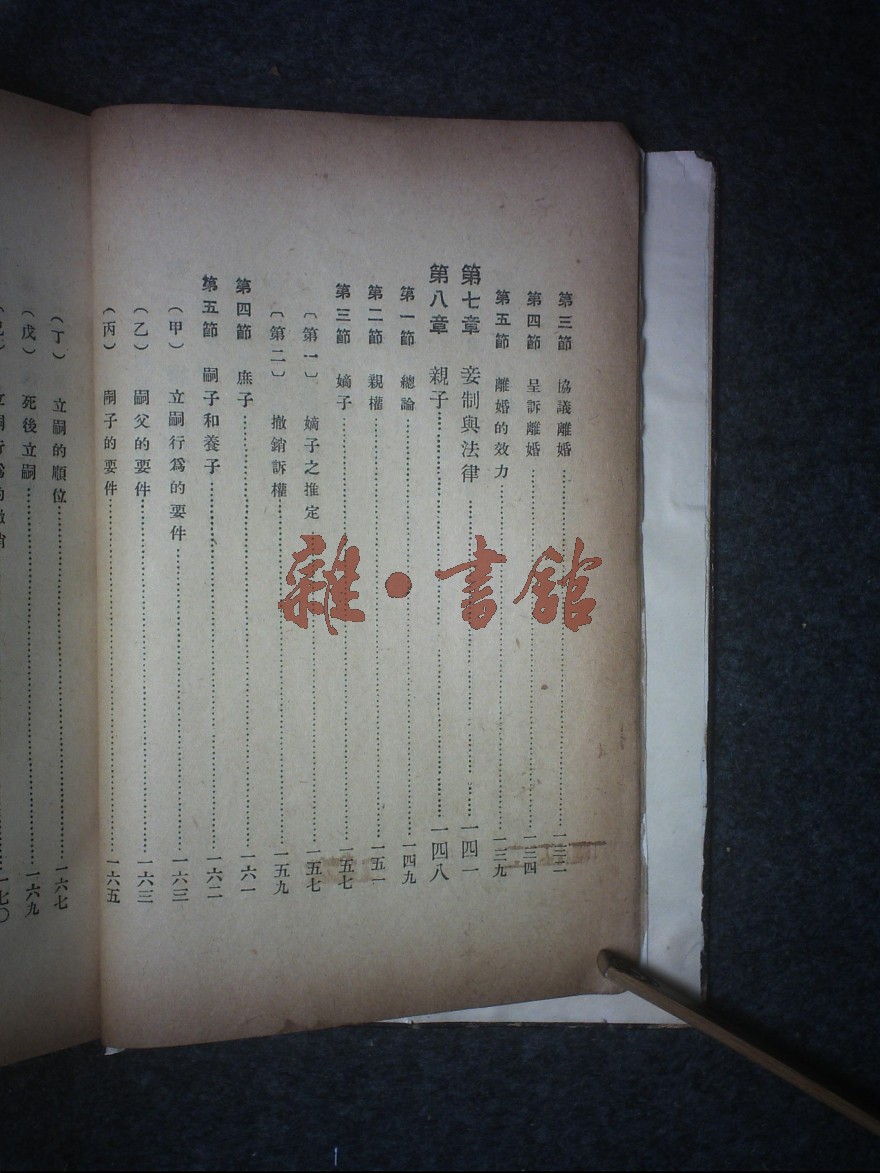 第三節 協議離婚
第四節 呈訴離婚………一三四
第五節 離婚的效力………一三九
第七章 妾制與法律………一四一
第八章 親子………一四八
第一節 總論………一四九
第二節 親權………一五一
第三節 嫡子………一五七
〔第一〕 嫡子之推定………一五七
〔第二〕 撤銷訴權………一五九
第四節 庶子………一六一
第五節 嗣子和養子………一六二
（甲） 立嗣行爲的要件………一六三
（乙） 嗣父的要件………一六三
（丙） 嗣子的要件………一六五
（丁） 立嗣的順位………一六七
（戊） 死後立嗣………一六九
立嗣行爲的撤銷………一七〇
雜·書館